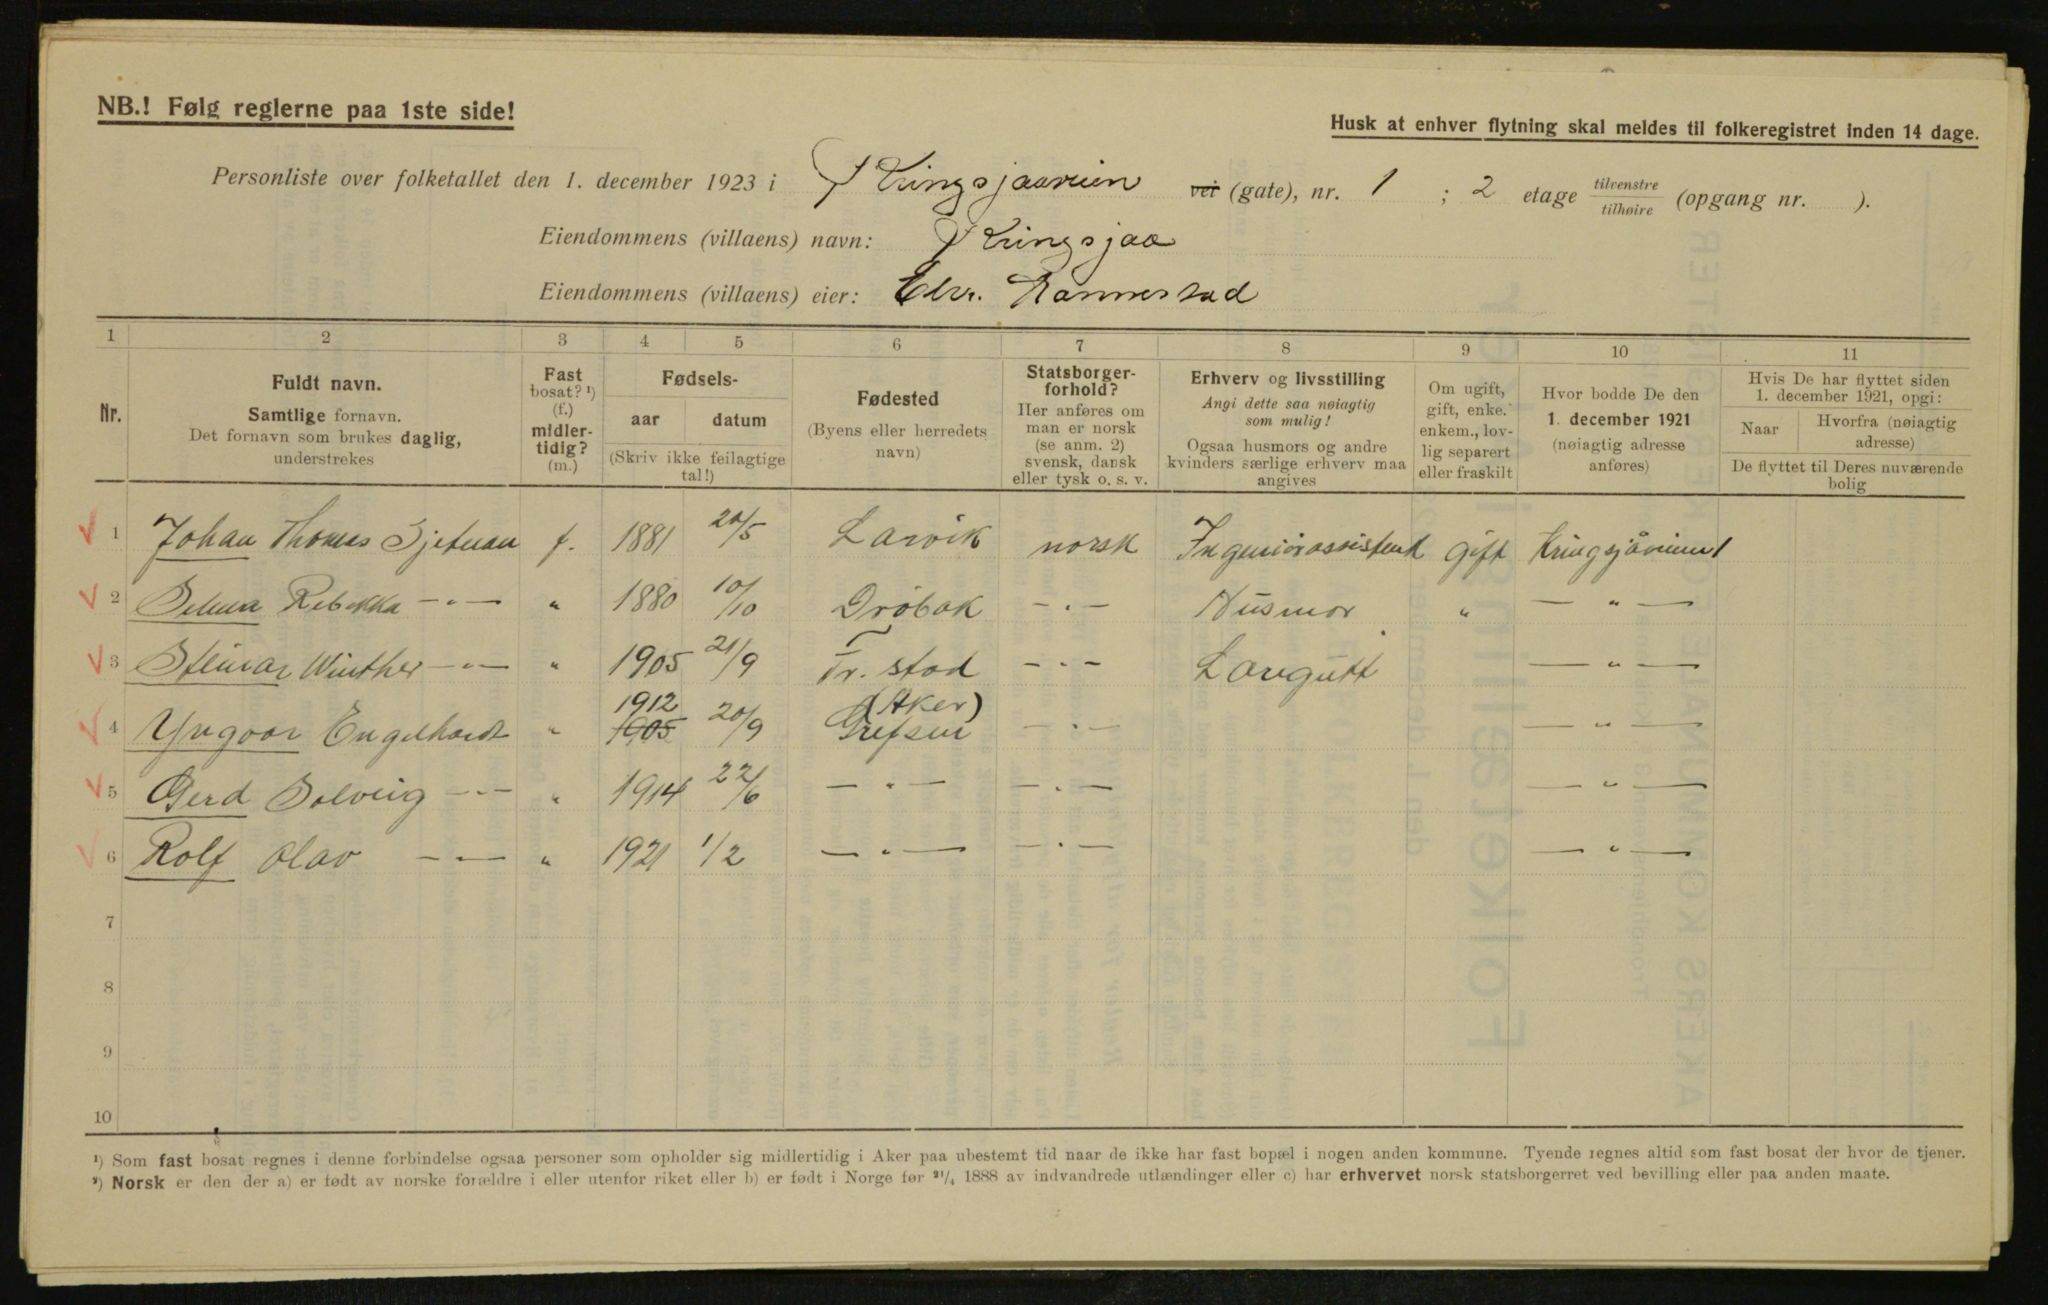 NB.! Følg reglerne paa 1ste side!
Husk at enhver flytning skal meldes til folkeregistret inden 14 dage.
Personliste over folketallet den 1. december 1923 i Kringsjaaveien vei (gate), nr. 1 ; 2 etage tilvenstre / tilhøire (opgang nr. ).
Eiendommens (villaens) navn: Kringsjaa
Eiendommens (villaens) eier: Chr. Hannestad
1 2 3 4 5 6 7 8 9 10 11
Nr.
Fuldt navn.
Samtlige fornavn.
Det fornavn som brukes daglig,
understrekes
Fast
bosat? ¹)
(f.)
midler-
tidig?
(m.)
Fødsels-
aar datum
(Skriv ikke feilagtige
tal!)
Fødested
(Byens eller herredets
navn)
Statsborger-
forhold?
Her anføres om
man er norsk
(se anm. 2)
svensk, dansk
eller tysk o. s. v.
Erhverv og livsstilling
Angi dette saa nøiagtig
som mulig!
Ogsaa husmors og andre
kvinders særlige erhverv maa
angives
Om ugift,
gift, enke.
enkem., lov-
lig separert
eller fraskilt
Hvor bodde De den
1. december 1921
(nøiagtig adresse
anføres)
Hvis De har flyttet siden
1. december 1921, opgi:
Naar
Hvorfra (nøiagtig
adresse)
De flyttet til Deres nuværende
bolig
1 Johan Thomas f. 1881 20/5 Larvik norsk Ingeniørassistent Gift Kringsjåveien 1
2 Selma Rebekka —"— " 1880 10/10 Drøbak —"— Husmor " —"—
3 Steinar Winther —"— " 1905 21/9 Fr. stad —"— Lavgutt —"—
4 Yngvar Engelhardt " 1912 1905 20/9 (Aker) Grefsen —"— —"—
5 Gerd Solveig —"— " 1914 22/6 —"— —"— —"—
6 Rolf Olav —"— " 1921 1/2 —"— —"— —"—
7
8
9
10
¹) Som fast bosat regnes i denne forbindelse ogsaa personer som opholder sig midlertidig i Aker paa ubestemt tid naar de ikke har fast bopæl i nogen anden kommune. Tyende regnes altid som fast bosat der hvor de tjener.
²) Norsk er den der a) er født av norske forældre i eller utenfor riket eller b) er født i Norge før 21/4 1888 av indvandrede utlændinger eller c) har erhvervet norsk statsborgerret ved bevilling eller paa anden maate.